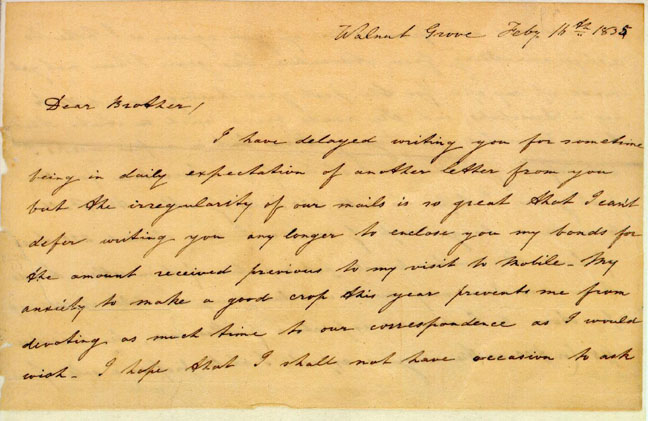 Walnut Grove Feby. 16th 1835
Dear Brother,
I have delayed writing you for sometime
being in daily expectation of another letter from you
but the irregularity of our mails is so great that I can't
defer writing you any longer to enclose you my bonds for
the amount received previous to my visit to Mobile - My
anxiety to make a good crop this year prevents me from
devoting as much time to our correspondence as I would
wish - I hope that I shall not have occasion to ask